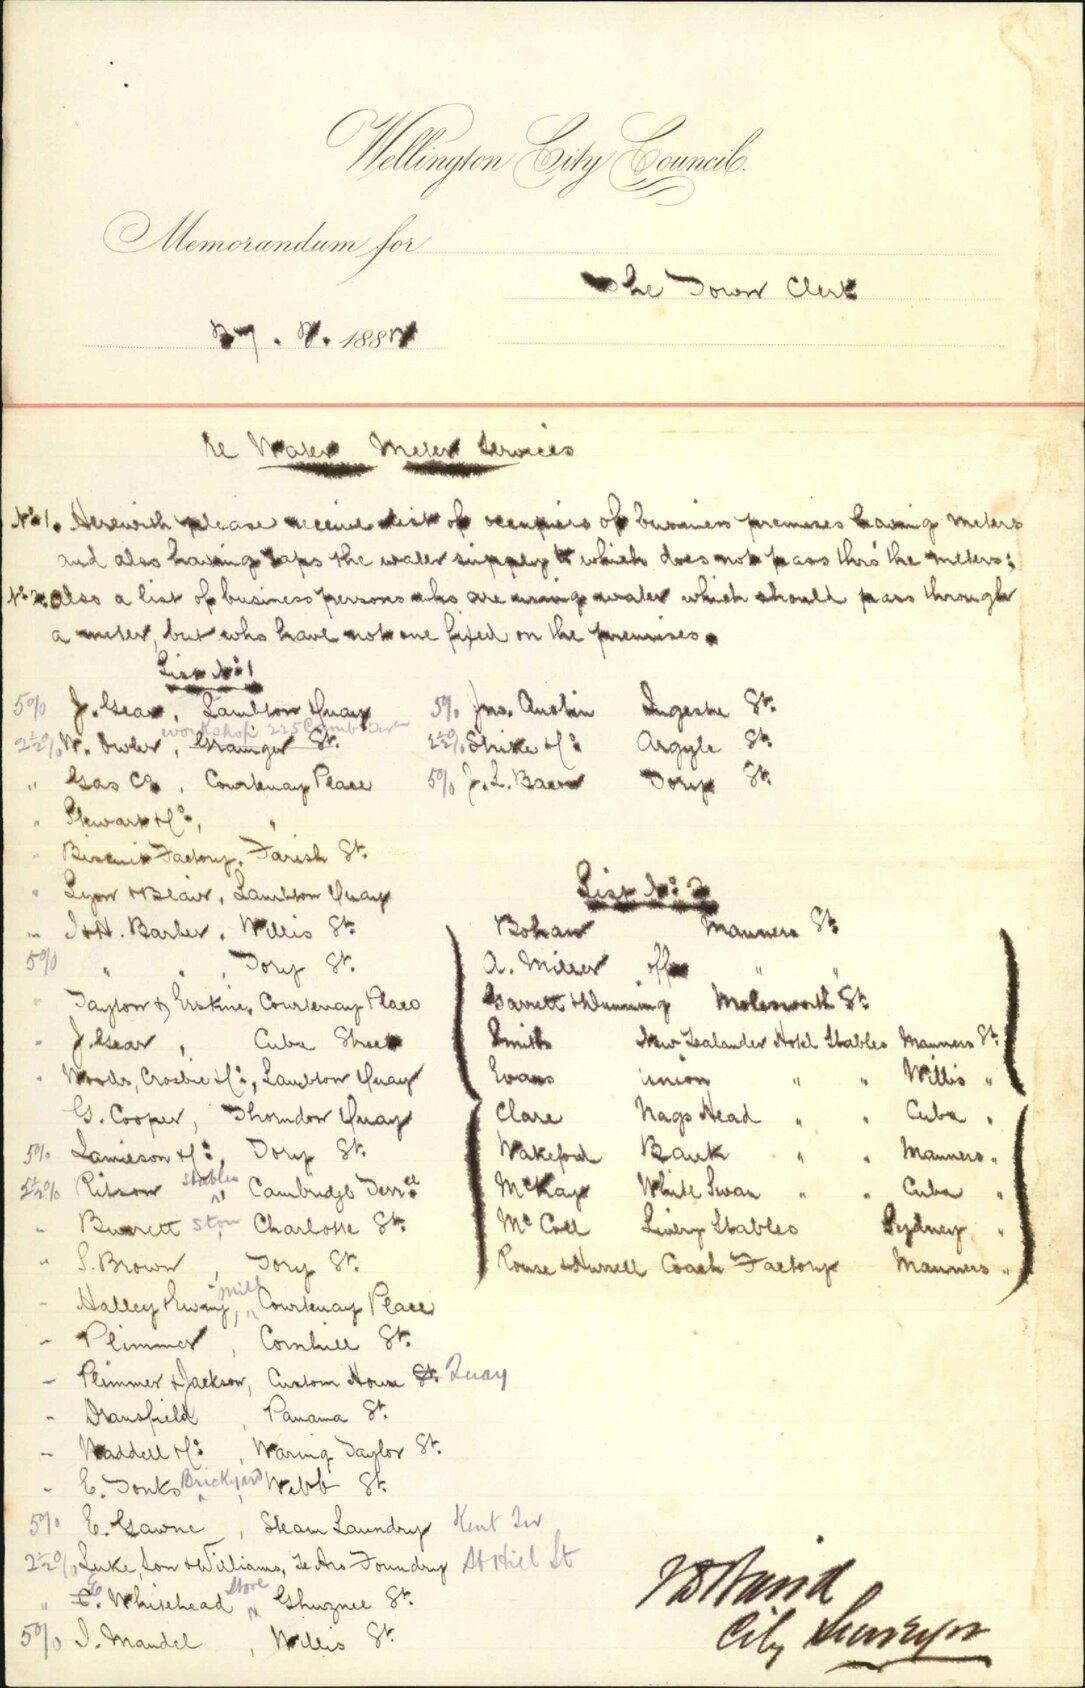 Wellington City Council.
Memorandum for
The Town Clerk
27. 188
re Water Meter Services
No. 1. Herewith please receive list of occupiers of business premises having meters
and also having taps the water supply to which does not pass thro' the meters;
No. 2 also a list of business persons who are using water which should pass through
a meter, but who have not one fixed on the premises.
List No. 1
5% J. Gear, Lambton Quay
workshop 225
2½% W., Grainger St.
" Gas Co, Courtenay Place
" Stewart & Co, "
" Biscuit Factory, Farish St.
" Lyon & Blair, Lambton Quay
" J & H. Barber, Willis St.
5% " " , Tory St.
" Taylor & Erskine, Courtenay Place
" J. Gear, Cuba Street
" Woods, Crosbie & Co, Lambton Quay
G. Cooper, Thorndon Quay
5% Jamieson & Co, Tory St.
2½% Ritson stables, Cambridge Terrce
" Burrett store, Charlotte St.
" S. Brown, Tory St.
- Halley & Ewing, mill Courtenay Place
- Plimmer, Cornhill St.
- Plimmer & Jackson, Custom House St. Quay
- Dransfield, Panama St.
- Waddell & Co, Waring Taylor St.
- E. Tonks Brickyard, Webb St.
5% E. Gawne, Steam Laundry Kent Ter
2½% Luke, Son & Williams, Te Aro Foundry St
" E. Whitehead store, Ghuznee St.
5% J. Mandel, Willis St.
5% Jno. Austin Ingestre St.
2½% & Co Argyle St.
5% J. L. Bacon Tory St.
List No. 2
Bohan Manners St.
A. Miller off " "
Garrett & Dunning Molesworth St.
Smith New Zealander Hotel Stables Manners St.
Evans Union " " Willis "
Clare Nags Head " " Cuba "
Wakeford Bank " " Manners "
McKay White Swan " " Cuba "
McCall Livery Stables Sydney "
Rouse & Hurrell Coach Factory Manners "
Baird
City Surveyor